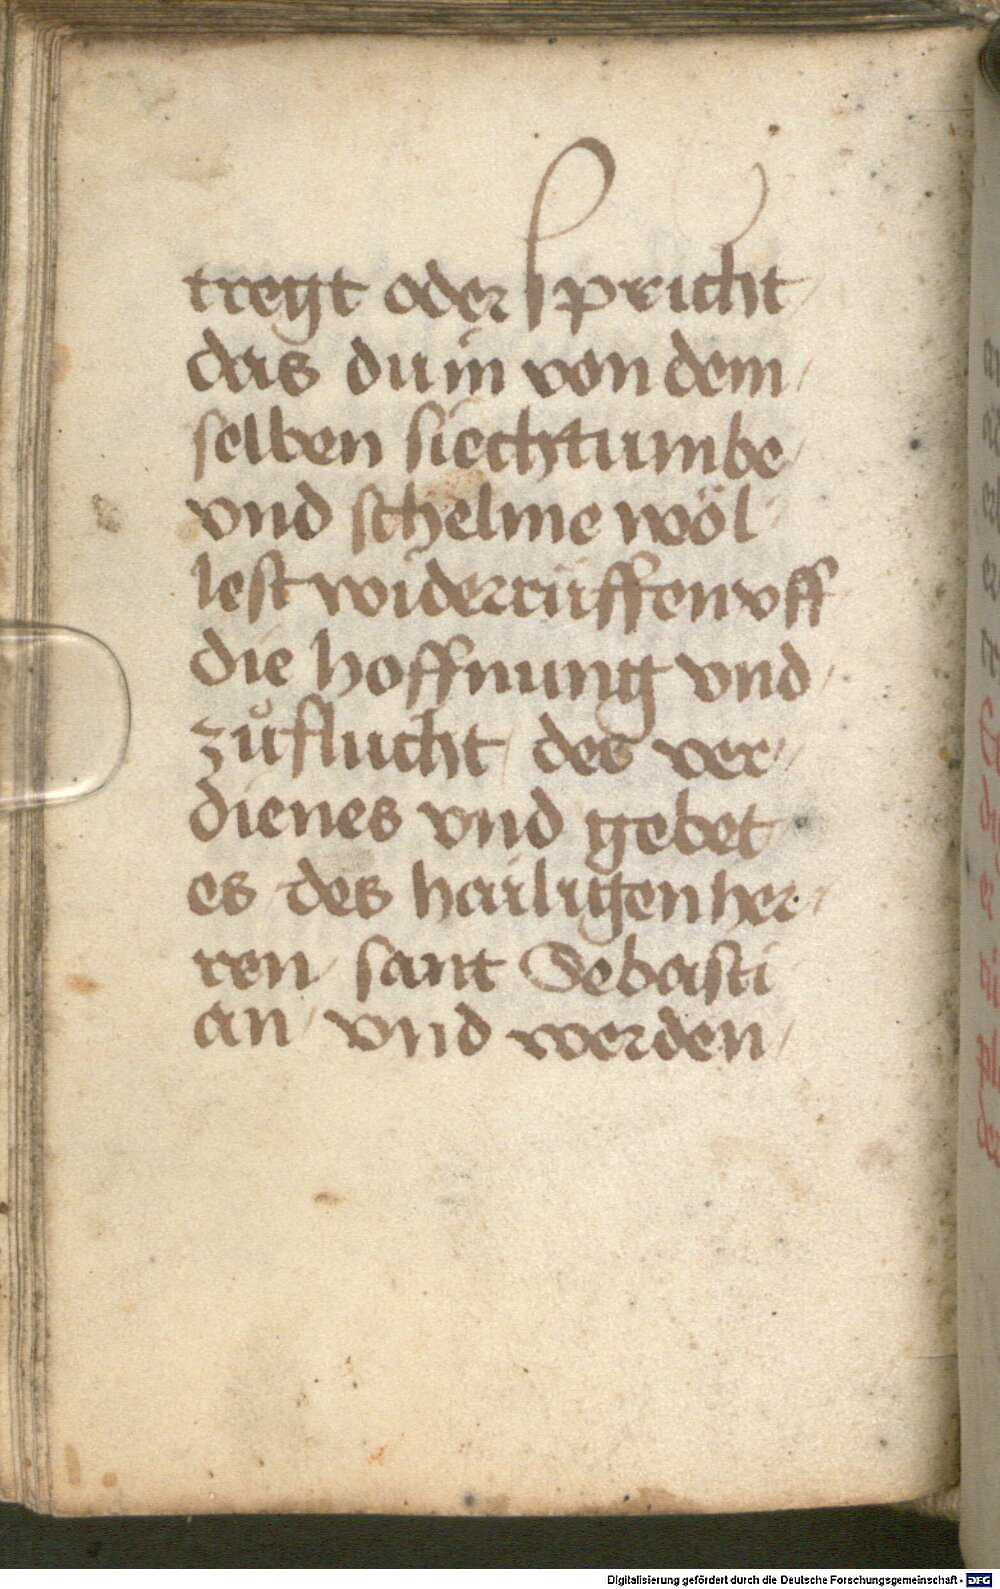 tregt oder spricht
das du in von dem
selben siechtumbe
vnd schelme wöl
lest widerrüffen vff
die hoffnung vnd
zůflucht des ver
dienes vnd gebet
es des hailigen her
ren sant Sebasti
an vnd werden
Digitalisierung gefördert durch die Deutsche Forschungsgemeinschaft - DFG